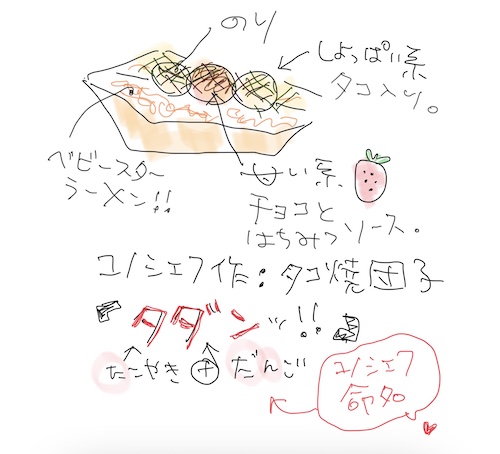 のり
しょっぱい系
タコ入り。
ベビースター
ラーメン!!
甘い系
チョコと
はちみつソース。
ユノシェフ作:タコ焼団子
『タダンッ!!』
たこやき+だんご
ユノシェフ
命名